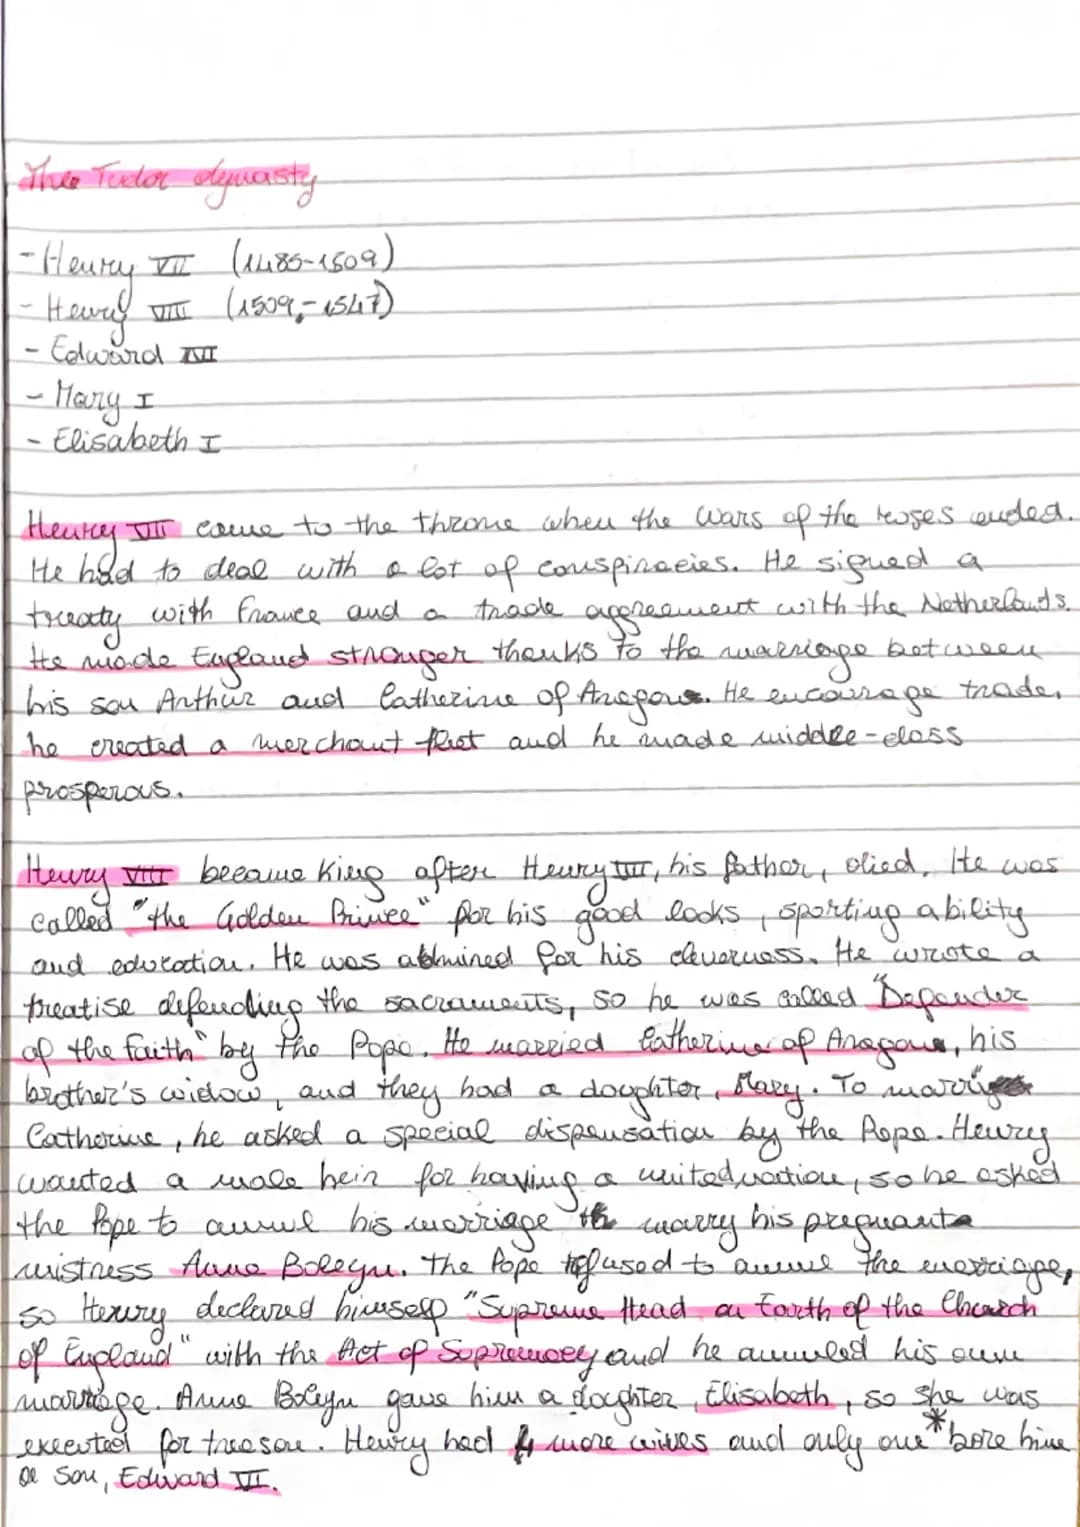 The Tudor dynasty
- Henry VII (1485-1509)
- Henry VIII (1509-1547)
- Edward VI
- Mary I
- Elisabeth I
Henry VII came to the throne when the Wars of the roses ended.
He had to deal with a lot of conspiracies. He signed a
treaty with France and a trade aggreement with the Netherlands.
He made England stronger thanks to the marriage between
his son Arthur and Catherine of Aragon. He encourage trade,
he created a merchant fleet and he made middle-class
prosperous.
Henry VIII became King after Henry VII, his father, died. He was
called "the Golden Prince" for his good looks, sporting ability
and education. He was admired for his cleverness. He wrote a
treatise defending the sacraments, so he was called "Defender
of the faith" by the Pope. He married Catherine of Aragon, his
brother's widow, and they had a doughter, Mary. To marry
Catherine, he asked a special dispensation by the Pope. Henry
wanted a male heir for having a united nation, so he asked
the Pope to annul his marriage to marry his pregnant
mistress Anne Boleyn. The Pope refused to annul the marriage,
so Henry declared himself "Supreme Head on Earth of the Church
of England" with the Act of Supremacy and he annuled his own
marriage. Anne Boleyn gave him a doughter, Elisabeth, so she was
executed for treason. Henry had 4 more wives and only one* bore him
a son, Edward VI.